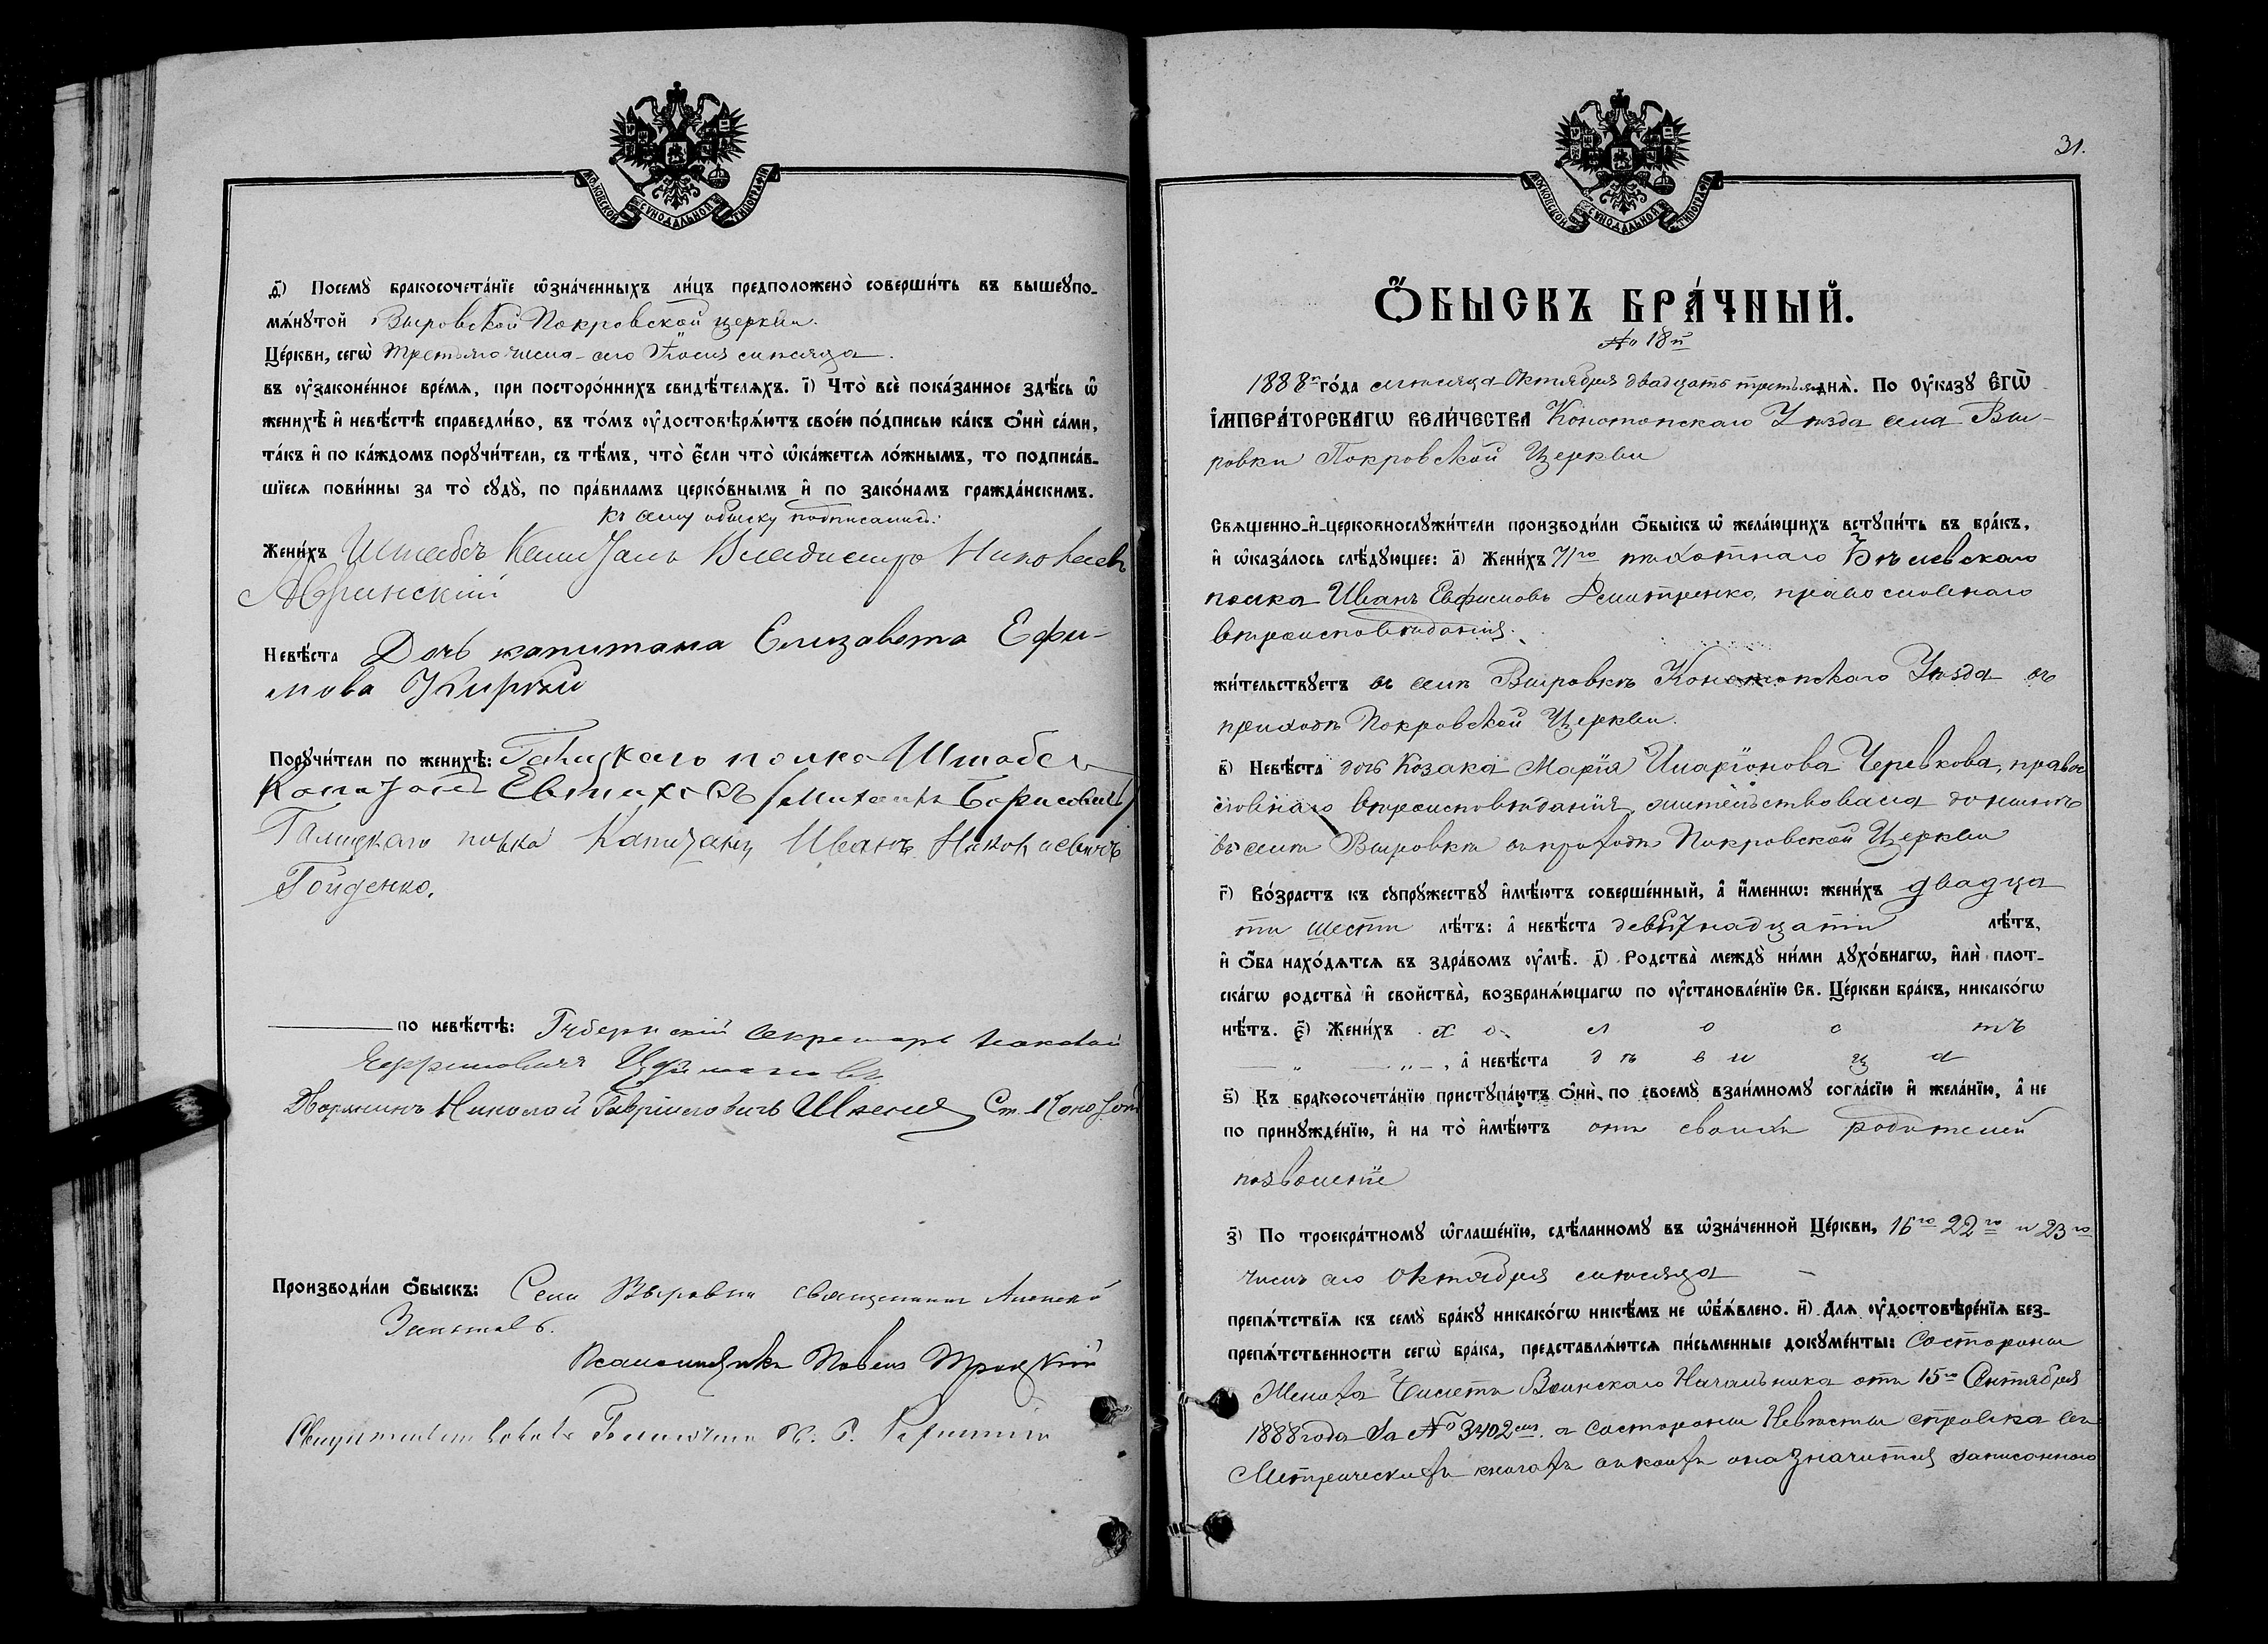 МОСКОВСКОЙ СѴНОДАЛЬНОЙ ТИПОГРАФІИ
д҃і) Посемꙋ̀ бракосочета́нїе ѡ҆зна́ченныхъ ли́цъ предположено̀ соверши́ть въ вышеꙋпо-
мѧ́нꙋтой Выровской Покровской церкви.
Це́ркви, сегѡ̀ третьяго числа
въ ᲂу҆законе́нное вре́мѧ, при посторо́ннихъ свидѣ́телѧхъ. і҃) Что̀ всѐ пока́занное здѣ́сь ѡ҆
женихѣ̀ и҆ невѣ́стѣ справедли́во, въ то́мъ ᲂу҆достовѣрѧ́ютъ свое́ю по́дписью ка́къ ѻ҆нѝ са́ми,
та́къ и҆ по ка́ждомъ порꙋчи́тели, съ тѣ́мъ, что̀ є҆́сли что̀ ѡ҆ка́жетсѧ ло́жнымъ, то подписа́в-
шїесѧ пови́нны за то̀ сꙋдꙋ̀, по пра́виламъ церко́внымъ и҆ по зако́намъ гражда́нскимъ.
къ сему обыску подписались:
Жени́хъ Штабсъ Капитанъ Владимиръ Николаевъ
Невѣ́ста Дочь капитана Елизавета Ефи-
мова
Порꙋчи́тели по женихѣ̀: Галицкаго полка Штабсъ
Капитанъ Михаилъ Борисовичъ
Галицкаго полка Капитанъ Иванъ Николаевичъ
Гойденко.
по невѣ́стѣ: Губернскій секретарь
Дворянинъ Николай Гавріиловичъ
Производи́ли ѻ҆́быскъ: Села Выровки священникъ
Псаломщикъ Павелъ Троицкій
31.
МОСКОВСКОЙ СѴНОДАЛЬНОЙ ТИПОГРАФІИ
Ѻ҆́БЫСКЪ БРА́ЧНЫЙ.
№ 18й
1888го го́да мѣсяца Октября двадцать третьяго днѧ̀. По Оу҆ка́зꙋ Є҆ГѠ̀
І҆МПЕРА́ТОРСКАГѠ ВЕЛИ́ЧЕСТВА Конотопскаго Уѣзда села Вы-
ровки Покровской Церкви
Свѧщенно-и҆-церковнослꙋжи́тели производи́ли ѻ҆́быскъ ѡ҆ жела́ющихъ встꙋпи́ть въ бра́къ,
и҆ ѡ҆каза́лось слѣ́дꙋющее: а҃) Жени́хъ 71го пѣхотнаго Бѣлевскаго
полка Иванъ Евфимовъ Дмитренко, православнаго
вѣроисповѣданія.
жи́тельствꙋетъ въ селѣ Выровкѣ Конотопскаго Уѣзда въ
приходѣ Покровской Церкви.
в҃) Невѣ́ста дочь Козака Марія Иларіонова Черевкова, право
славнаго вѣроисповѣданія, жительствовала до нынѣ
въ селѣ Выровкѣ въ приходѣ Покровской Церкви
г҃) Во́зрастъ къ сꙋпрꙋ́жествꙋ и҆мѣ́ютъ соверше́нный, а҆ и҆́меннѡ: жени́хъ двадца
ти шести лѣ́тъ: а҆ невѣ́ста девятнадцати лѣ́тъ,
и҆ ѻ҆́ба нахо́дѧтсѧ въ здра́вомъ ᲂу҆мѣ̀. д҃) Родства̀ междꙋ̀ ни́ми дꙋхо́внагѡ, и҆лѝ плот-
ска́гѡ родства̀ и҆ свойства̀, возбранѧ́ющагѡ по ᲂу҆становле́нїю Св. Це́ркви бра́къ, никако́гѡ
нѣ́тъ. є҃) Жени́хъ х о л о с тъ
— „ — „ —, а҆ невѣ́ста д ѣ в и ц а
ѕ҃) Къ бракосочета́нїю пристꙋпа́ютъ ѻ҆нѝ, по своемꙋ̀ взаи́мномꙋ согла́сїю и҆ жела́нїю, а҆ не
по принꙋжде́нїю, и҆ на то̀ и҆мѣ́ютъ отъ своихъ родителей
позволеніе
з҃) По троекра́тномꙋ ѡ҆глаше́нїю, сдѣ́ланномꙋ въ ѡ҆зна́ченной Це́ркви, 16го 22го и 23го
числъ сего октября мѣсяца —
препѧ́тствїѧ къ семꙋ̀ бра́кꙋ никако́гѡ никѣ́мъ не ѡ҆б̾ѧ́влено. и҃) Длѧ ᲂу҆достовѣре́нїѧ без-
препѧ́тственности сегѡ̀ бра́ка, представлѧ́ютсѧ пи́сьменные докꙋме́нты: Состороны
Жениха билетъ Воинскаго Начальника отъ 15го Сентября
1888 года за № 3402мъ. а состороны Невѣсты справка въ
Метрическихъ книгахъ въ коихъ она значится записанною